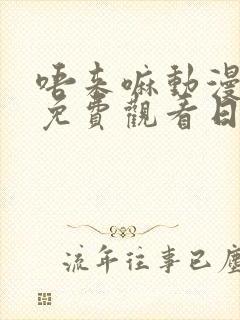 唔来嘛動漫
免費觀看日
流年往事已塵